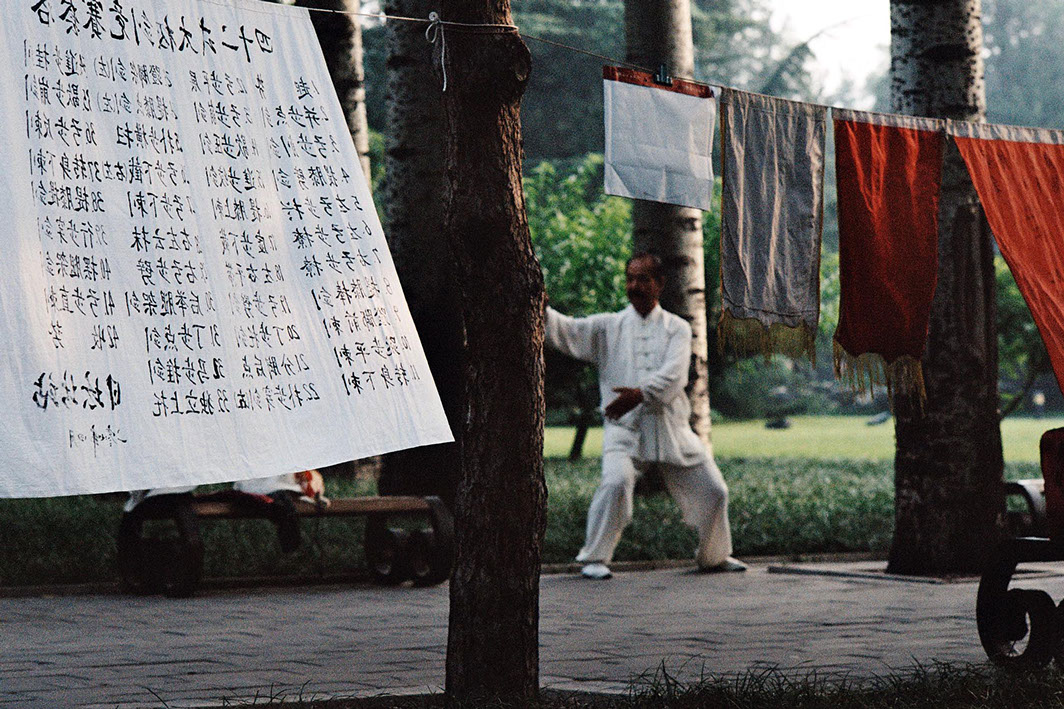 四十二式太极剑竞赛套
1.起
2.并步点剑
3.弓步削剑
4.提膝劈剑
5.左弓步拦
6.左虚步撩
7.右弓步撩
8.提膝捧剑
9.蹬脚前刺
10.跳步平刺
11.转身下刺
12.弓步平斩
13.弓步崩剑
14.歇步压剑
15.进步绞剑
16.提膝刺
17.虚步下截
18.左右平带
19.弓步劈剑
20.丁步托剑
21.分脚后点
22.仆步穿剑(右)
23.蹬脚架剑(左)
24.提膝点剑
25.仆步横扫
26.弓步下截(右左)
27.弓步下刺
28.右左云抹
29.右弓步劈
30.后举腿架剑
31.丁步点剑
32.马步推剑
33.独立上托
34.进步挂剑
35.歇步崩剑
36.弓步反刺
37.转身下刺
38.提膝提剑
39.行步穿剑
40.摆腿架剑
41.弓步直刺
42.收势
日坛
四月